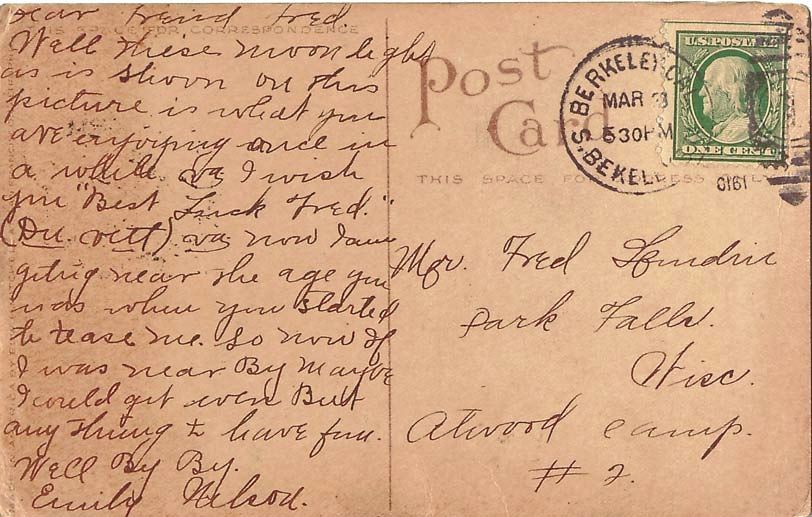 Dear Freind Fred.
Well these moon light
as is shoon on this
picture is what you
are enjoying once in
a while va I wish
you "Best Luck Fred."
(Du vett) va now I am
geting near the age you
was when you started
to tease me. so now if
I was near By Maybe
I could get even But
any thing to have fun.
Well By By.
Emily Nelson.
THIS SPACE FOR CORRESPONDENCE
Post
Card
THIS SPACE FOR ADDRESS ONLY
S. BERKELEY
MAR
5 30 PM
1910
U.S. POSTAGE
ONE CENT
Mr. Fred
Park Falls.
Wisc.
Atwood Camp.
# 2.